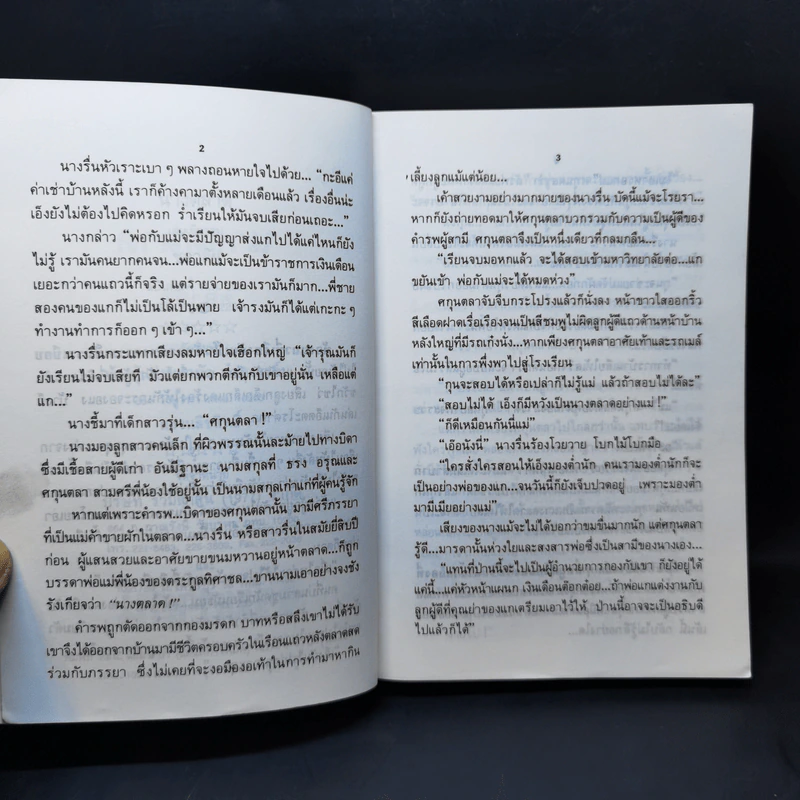 2
นางรื่นหัวเราะเบา ๆ พลางถอนหายใจไปด้วย... “กะอีแค่
ค่าเช่าบ้านหลังนี้ เราก็ค้างคามาตั้งหลายเดือนแล้ว เรื่องอื่นน่ะ
เอ็งยังไม่ต้องไปคิดหรอก ร่ำเรียนให้มันจบเสียก่อนเถอะ...”
นางกล่าว “พ่อกับแม่จะมีปัญญาส่งแกไปได้แค่ไหนก็ยัง
ไม่รู้ เรามันคนยากคนจน...พ่อแกแม้จะเป็นข้าราชการเงินเดือน
เยอะกว่าคนแถวนี้ก็จริง แต่รายจ่ายของเรามันก็มาก...พี่ชาย
สองคนของแกก็ไม่เป็นโล้เป็นพาย เจ้ารงมันก็ได้แต่เกะกะ ๆ
ทำงานทำการก็ออก ๆ เข้า ๆ...”
นางรื่นกระแทกเสียงลมหายใจเฮือกใหญ่ “เจ้ารุณมันก็
ยังเรียนไม่จบเสียที มัวแต่ยกพวกตีกันกับเขาอยู่นั่น เหลือแต่
แก...”
นางชี้มาที่เด็กสาวรุ่น... “ศกุนตลา !”
นางมองลูกสาวคนเล็ก ที่ผิวพรรณนั้นละม้ายไปทางบิดา
ซึ่งมีเชื้อสายผู้ดีเก่า อันมีฐานะ นามสกุลที่ ธรง อรุณและ
ศกุนตลา สามศรีพี่น้องใช้อยู่นั้น เป็นนามสกุลเก่าแก่ที่ผู้คนรู้จัก
หากแต่เพราะคำรพ...บิดาของศกุนตลานั้น มามีศรีภรรยา
ที่เป็นแม่ค้าขายผักในตลาด...นางรื่น หรือสาวรื่นในสมัยยี่สิบปี
ก่อน ผู้แสนสวยและอาศัยขายขนมหวานอยู่หน้าตลาด...ก็ถูก
บรรดาพ่อแม่พี่น้องของตระกูลทิศาชล...ขานนามเอาอย่างจงชัง
รังเกียจว่า “นางตลาด !”
คำรพถูกตัดออกจากกองมรดก บาทหรือสลึงเขาไม่ได้รับ
เขาจึงได้ออกจากบ้านมามีชีวิตครอบครัวในเรือนแถวหลังตลาดสด
ร่วมกับภรรยา ซึ่งไม่เคยที่จะงอมืองอเท้าในการทำมาหากิน
3
เลี้ยงลูกแม้แต่น้อย...
เค้าสวยงามอย่างมากมายของนางรื่น บัดนี้แม้จะโรยรา...
หากก็ยังถ่ายทอดมาให้ศกุนตลาบวกรวมกับความเป็นผู้ดีของ
คำรพผู้สามี ศกุนตลาจึงเป็นหนึ่งเดียวที่กลมกลืน...
“เรียนจบมอหกแล้ว จะได้สอบเข้ามหาวิทยาลัยต่อ...แก
ขยันเข้า พ่อกับแม่จะได้หมดห่วง”
ศกุนตลาจับจีบกระโปรงแล้วก็นั่งลง หน้าขาวใสออกริ้ว
สีเลือดฝาดเรื่อเรืองจนเป็นสีชมพูไม่ผิดลูกผู้ดีแถวด้านหน้าบ้าน
หลังใหญ่ที่มีรถเก๋งนั่ง...หากเพียงศกุนตลาอาศัยเท้าและรถเมล์
เท่านั้นในการพึ่งพาไปสู่โรงเรียน
“กุนจะสอบได้หรือเปล่าก็ไม่รู้แม่ แล้วถ้าสอบไม่ได้ล่ะ”
“สอบไม่ได้ เอ็งก็มีหวังเป็นนางตลาดอย่างแม่ !”
“ก็ดีเหมือนกันนี่แม่”
“เอ๊อนังนี่” นางรื่นร้องโวยวาย โบกไม้โบกมือ
“ใครสั่งใครสอนให้เอ็งมองต่ำนัก คนเรามองต่ำนักก็จะ
เป็นอย่างพ่อของแก...จนวันนี้ก็ยังเจ็บปวดอยู่ เพราะมองต่ำ
มามีเมียอย่างแม่”
เสียงของนางแม้จะไม่ได้บอกว่าขมขื่นมากนัก แต่ศกุนตลา
รู้ดี...มารดานั้นห่วงใยและสงสารพ่อซึ่งเป็นสามีของนางเอง...
“แทนที่ป่านนี้จะไปเป็นผู้อำนวยการกองกับเขา ก็ยังอยู่ได้
แค่นี้...แค่หัวหน้าแผนก เงินเดือนต๊อกต๋อย...ถ้าพ่อแกแต่งงานกับ
ลูกผู้ดีที่คุณย่าของแกเตรียมเอาไว้ให้ ป่านนี้อาจจะเป็นอธิบดี
ไปแล้วก็ได้”